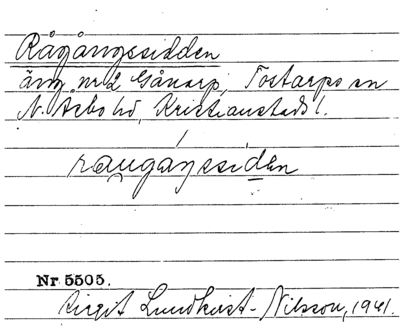 Rågångssidden
äng, nr 2 Gånarp, Tostarps sn
N. Åsbo hd, Kristianstads l.
raugaŋssiden
Nr 5505.
Birgit Lundkvist-Nilsson, 1941.